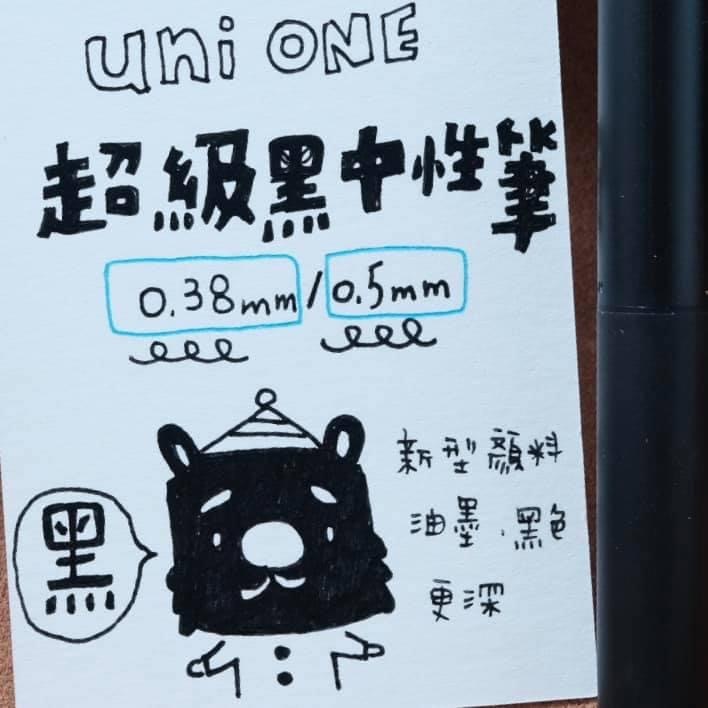 uni ONE
超級黑中性筆
0.38mm/0.5mm
新型顏料
油墨.黑色
更深
黑